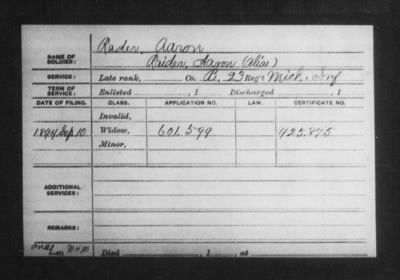 Rader, Aaron
NAME OF SOLDIER: Raider, Aaron (Alias)
SERVICE: Late rank, Co. B, 23 Reg't Mich. Inf
TERM OF SERVICE: Enlisted , 1 Discharged , 1
DATE OF FILING. CLASS. APPLICATION NO. LAW. CERTIFICATE NO.
Invalid,
1894 Sep 10 Widow, 601.599 423.875
Minor,
ADDITIONAL SERVICES:
REMARKS:
Died , 1 , at